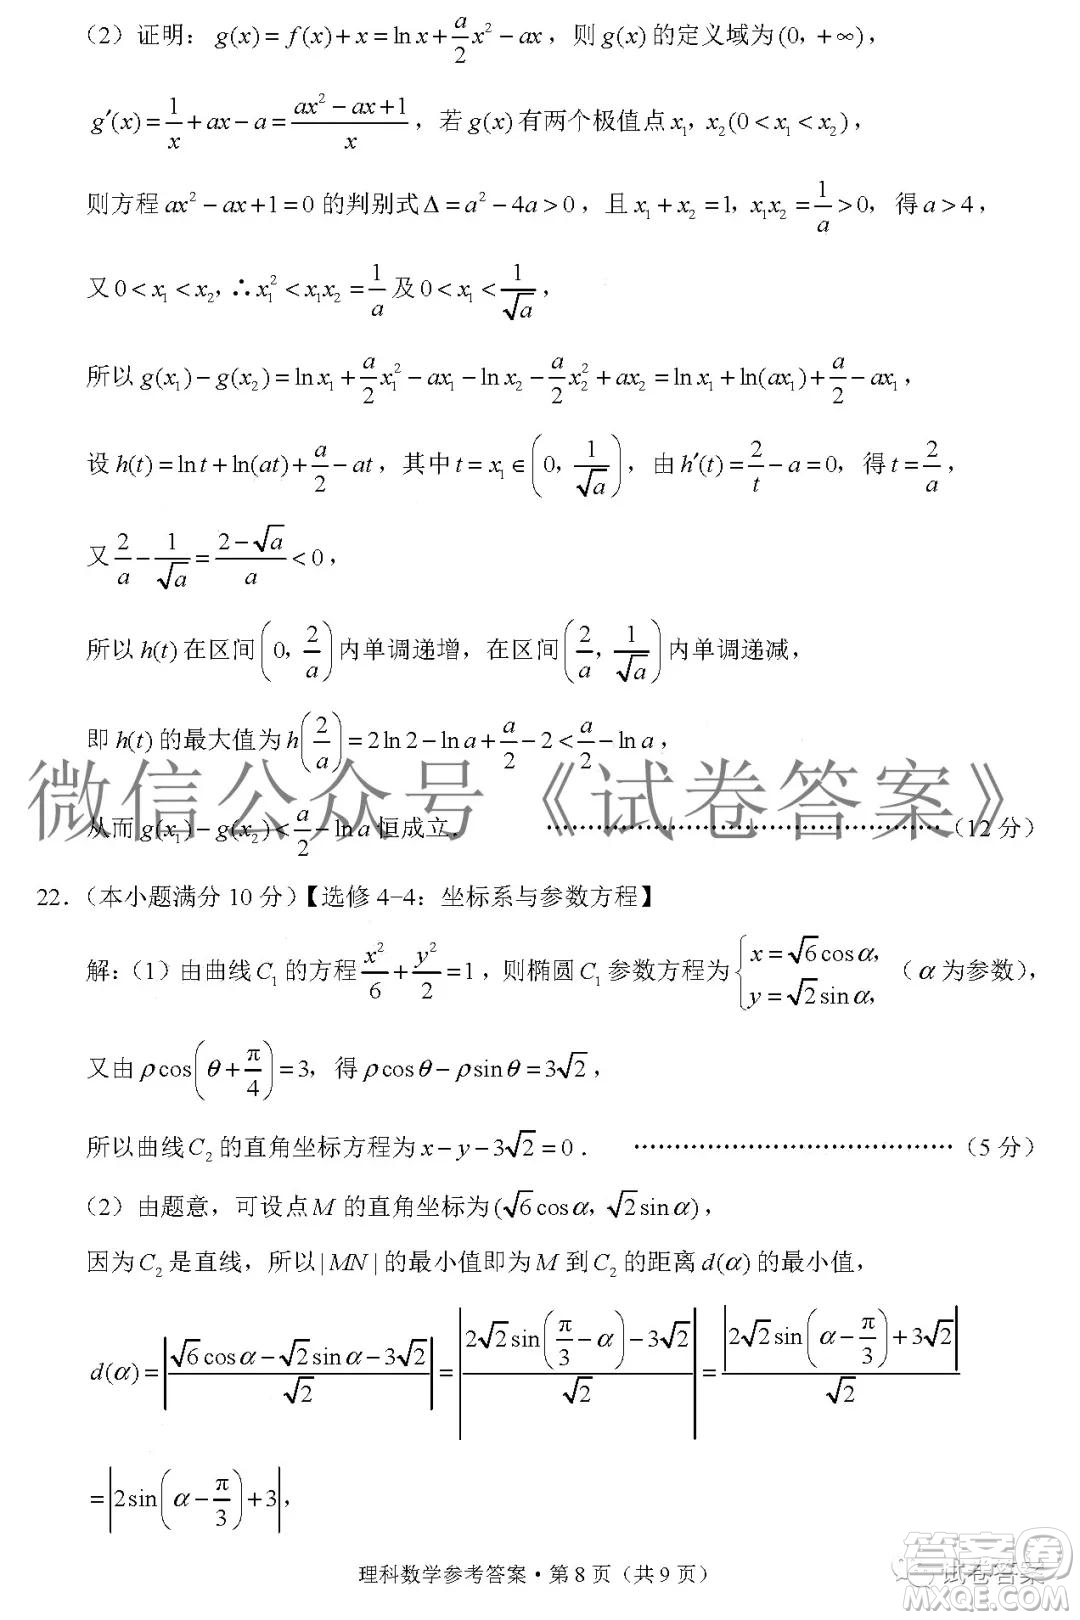 (2) 证明：g(x)=f(x)+x=ln x+a/2 x²−ax，则 g(x) 的定义域为 (0, +∞)，
g′(x)=1/x+ax−a=(ax²−ax+1)/x，若 g(x) 有两个极值点 x₁, x₂(0<x₁<x₂)，
则方程 ax²−ax+1=0 的判别式 Δ=a²−4a>0，且 x₁+x₂=1, x₁x₂=1/a>0，得 a>4，
又 0<x₁<x₂, ∴x₁²<x₁x₂=1/a 及 0<x₁<1/√a，
所以 g(x₁)−g(x₂)=ln x₁+a/2 x₁²−ax₁−ln x₂−a/2 x₂²+ax₂=ln x₁+ln(ax₁)+a/2−ax₁，
设 h(t)=ln t+ln(at)+a/2−at，其中 t=x₁∈(0, 1/√a)，由 h′(t)=2/t−a=0，得 t=2/a，
又 2/a−1/√a=(2−√a)/a<0，
所以 h(t) 在区间(0, 2/a)内单调递增，在区间(2/a, 1/√a)内单调递减，
即 h(t) 的最大值为 h(2/a)=2ln2−ln a+a/2−2<a/2−ln a，
微信公众号《试卷答案》
从而 g(x₁)−g(x₂)<a/2−ln a 恒成立. ……………………………………（12 分）
22.（本小题满分 10 分）【选修 4−4：坐标系与参数方程】
解：(1) 由曲线 C₁ 的方程 x²/6+y²/2=1，则椭圆 C₁ 参数方程为 {x=√6cosα, y=√2sinα,（α 为参数），
又由 ρcos(θ+π/4)=3，得 ρcosθ−ρsinθ=3√2，
所以曲线 C₂ 的直角坐标方程为 x−y−3√2=0. ……………………………（5 分）
(2) 由题意，可设点 M 的直角坐标为 (√6cosα, √2sinα)，
因为 C₂ 是直线，所以 |MN| 的最小值即为 M 到 C₂ 的距离 d(α) 的最小值，
d(α)=|(√6cosα−√2sinα−3√2)/√2|=|(2√2sin(π/3−α)−3√2)/√2|=|(2√2sin(α−π/3)+3√2)/√2|
=|2sin(α−π/3)+3|，
理科数学参考答案·第 8 页（共 9 页）
试卷答案
答案圈
MXQE.COM